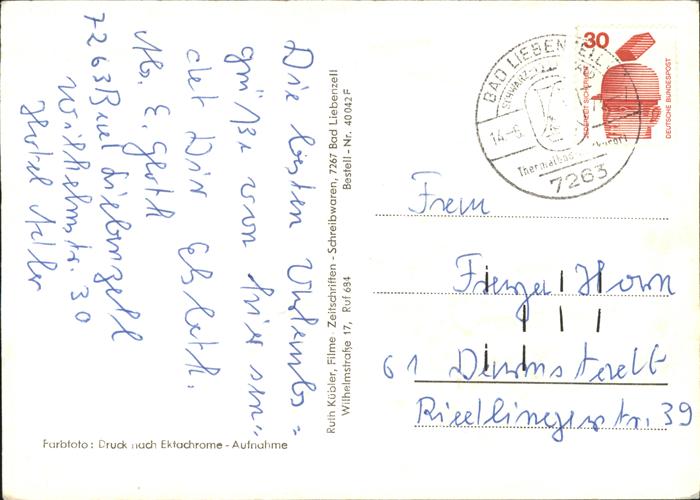 Die besten Urlaubs=
grüße von hier sen=
det Dir Elsbeth.
Abs. E. Groth
7263 Bad Liebenzell
Wilhelmstr. 30
Hotel Adler
Ruth Kübler, Filme - Zeitschriften - Schreibwaren, 7267 Bad Liebenzell
Wilhelmstraße 17, Ruf 684
Bestell - Nr. 40042 F
Farbfoto : Druck nach Ektachrome - Aufnahme
30
JEDERZEIT SICHERHEIT
DEUTSCHE BUNDESPOST
BAD LIEBENZELL
14.-6.
Thermalbad
7263
Frau
Horn
61 Darmstadt
Riedlingerstr. 39